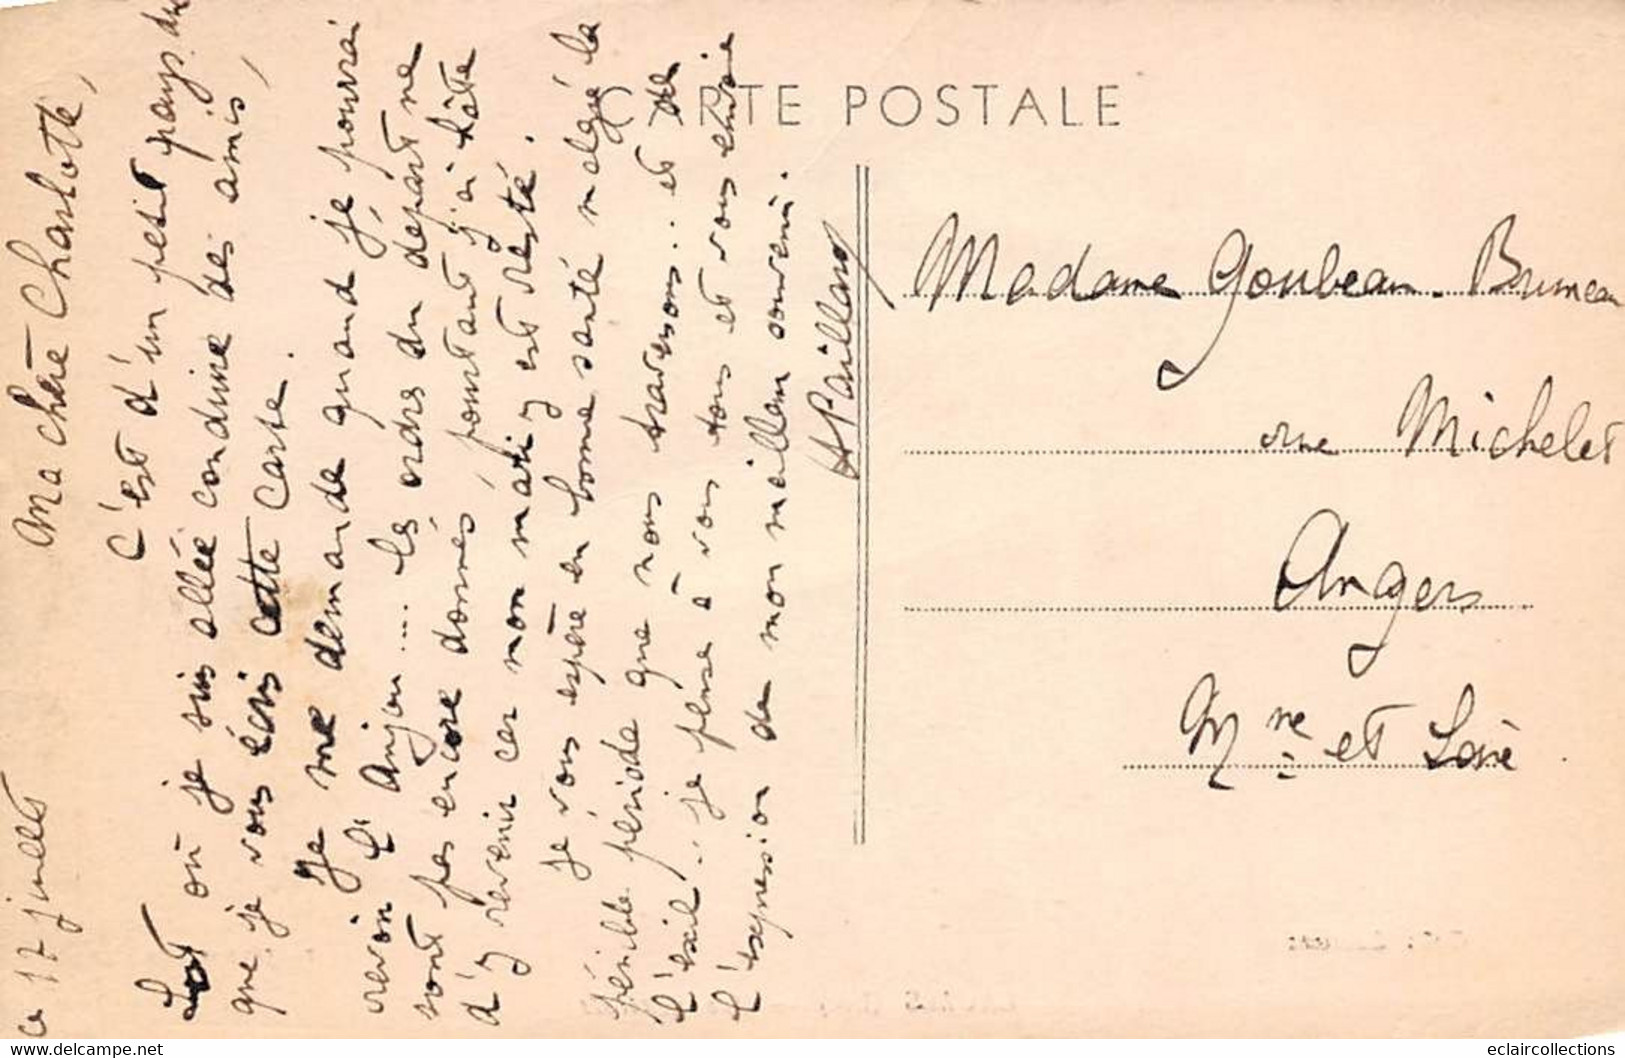 CARTE POSTALE
ce 17 juillet
Ma chère Charlotte,
C'est d'un petit pays du
Lot où je suis allée conduire des amis,
que je vous écris cette carte.
Je me demande quand je pourrai
revoir l'Anjou... les ordres du départ ne
sont pas encore donnés, pourtant j'ai hâte
d'y revenir car mon mari y est resté.
Je vous espère en bonne santé malgré la
pénible période que nous traversons.. et de
l'exil... je pense à vous tous et vous envoie
l'expression de mon meilleur souvenir.
Paillard
Madame Goubeau-Bruneau
rue Michelet
Angers
Mne et Loire
delcampe.net
eclaircollections